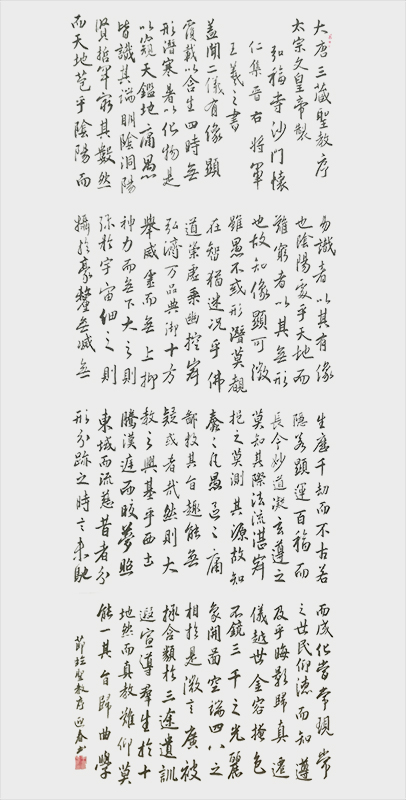 大唐三藏聖教序
太宗文皇帝製
弘福寺沙門懷
仁集晉右將軍
王羲之書
蓋聞二儀有像顯
覆載以含生四時無
形潛寒暑以化物是
以窺天鑑地庸愚
皆識其端明陰洞陽
賢哲罕窮其數然
而天地苞乎陰陽而
易識者以其有像
也陰陽處乎天地而
難窮者以其無形
也故知像顯可徵
雖愚不惑形潛莫覩
在智猶迷況乎佛
道崇虛乘幽控寂
弘濟万品典御十方
舉威靈而無上抑
神力而無下大之則
弥於宇宙細之則
攝於豪釐無滅無
生歷千劫而不古若
隱若顯運百福而
長今妙道凝玄遵之
莫知其際法流湛寂
挹之莫測其源故知
蠢々凡愚區々庸
鄙投其旨趣能無
疑或者哉然則大
教之興基乎西土
騰漢庭而皎夢照
東域而流慈昔者分
形分跡之時言未馳
而成化當常現常
之世民仰德而知遵
及乎晦影歸真遷
儀越世金容掩色
不鏡三千之光麗
象開圖空端四八之
相於是微言廣被
拯含類於三途遺訓
遐宣導群生於十
地然而真教難仰莫
能一其旨歸曲學
節臨聖教序迎春書